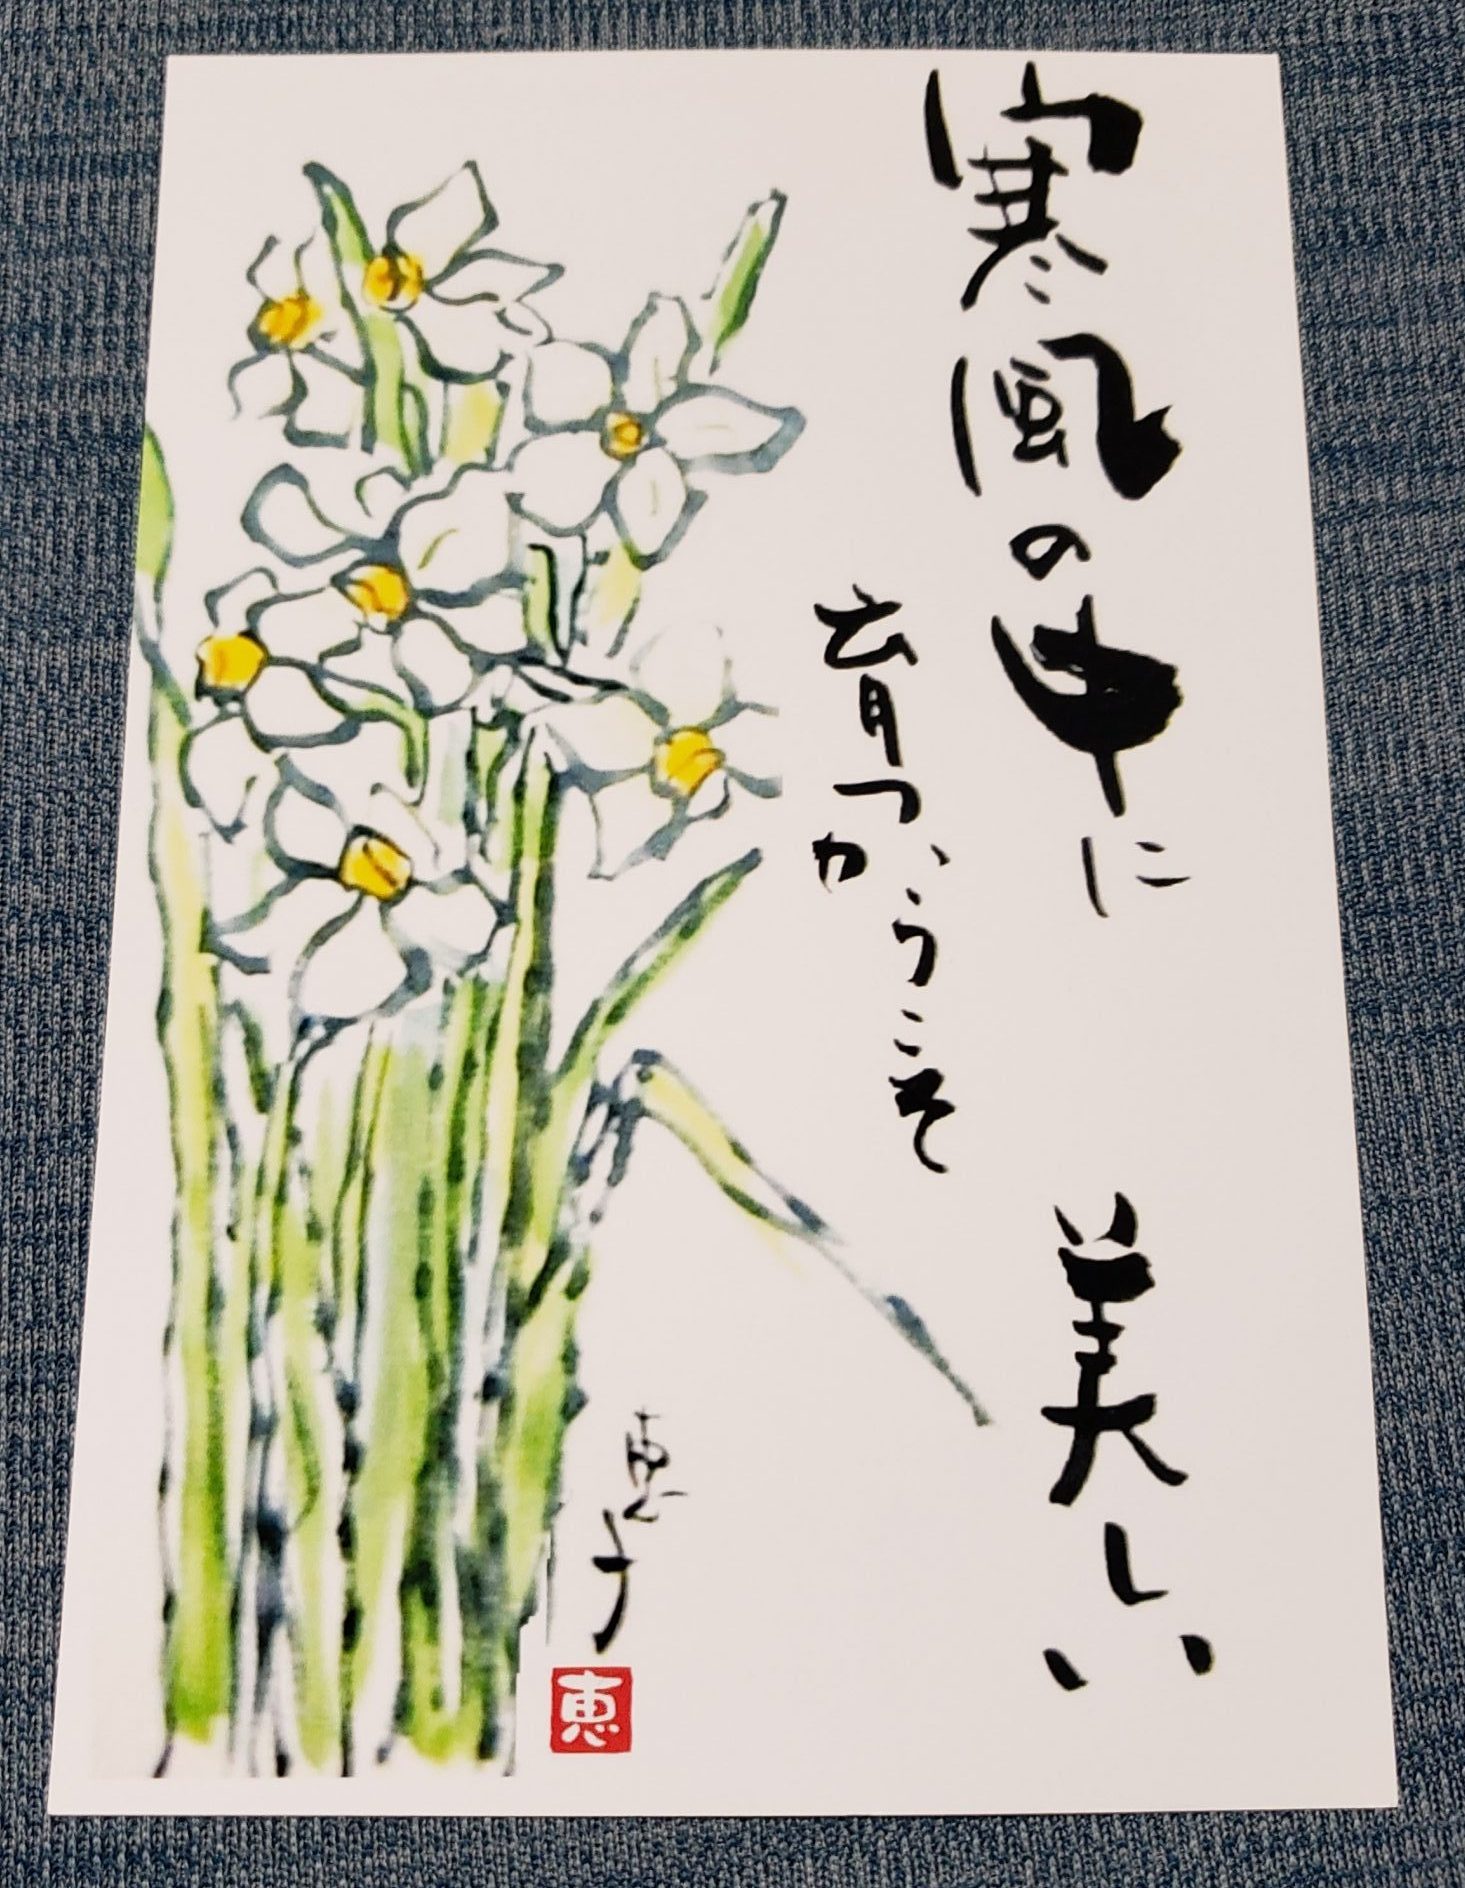 寒風の中に 美しい
育つからこそ
恵子
恵